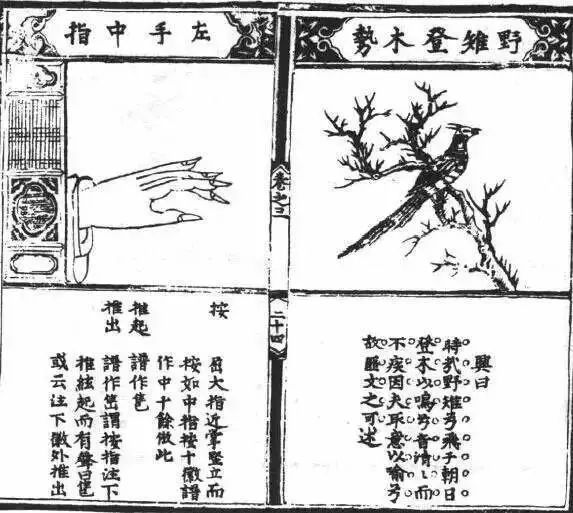 野雉登木勢
興曰
時哉野雉兮飛于朝日
登木以鳴兮音清〻而
不疾因夫取意以喻兮
故匪文之可述
卷之
二十四
左手中指
按
屈大指近掌竪立而
按如中指按十徽譜
作中十餘倣此
推起 譜作
推出 譜作 謂按指注下
推絃起而有聲曰
或云注下徽外推出